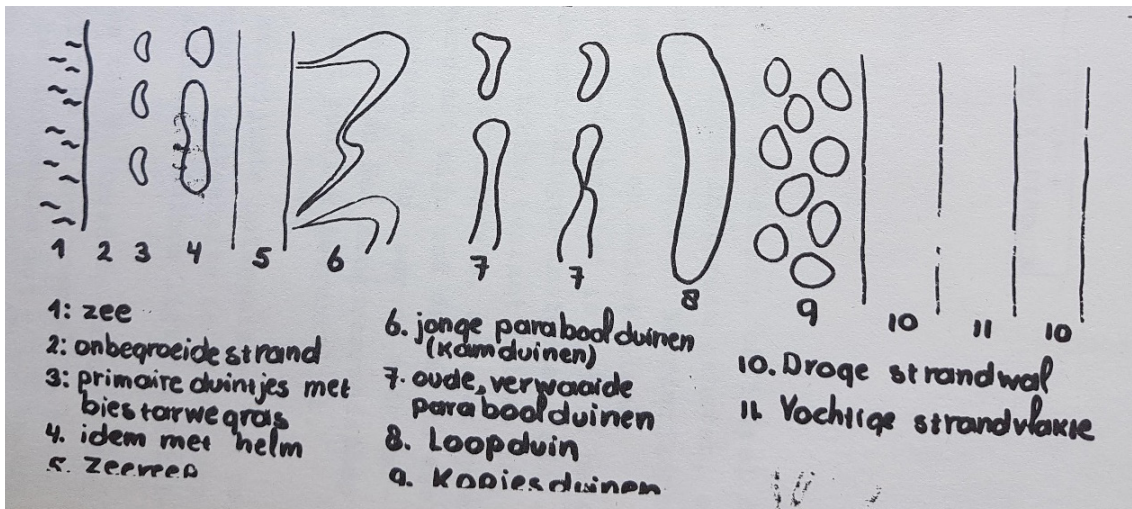 1 2 3 4 5 6 7 7 8 9 10 11 10
1: zee
2: onbegroeide strand
3: primaire duintjes met
biestarwegras
4. idem met helm
5. Zeereep
6. jonge paraboolduinen
(Kamduinen)
7. oude, verwaaide
paraboolduinen
8. Loopduin
9. Kopjesduinen
10. Droge strandwal
11. Vochtige strandvlakte